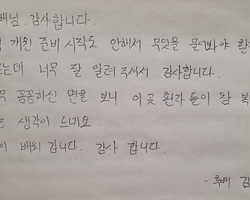 배님, 감사합니다.
개원 준비 시작도 안해서 무엇을 물어봐야 할
는데 너무 잘 알려주셔서 감사합니다.
꼼꼼하신 면을 보니 이 곳 환자들이 참 복
는 생각이 드네요.
배워 갑니다. 감사 합니다.
- 후배 김